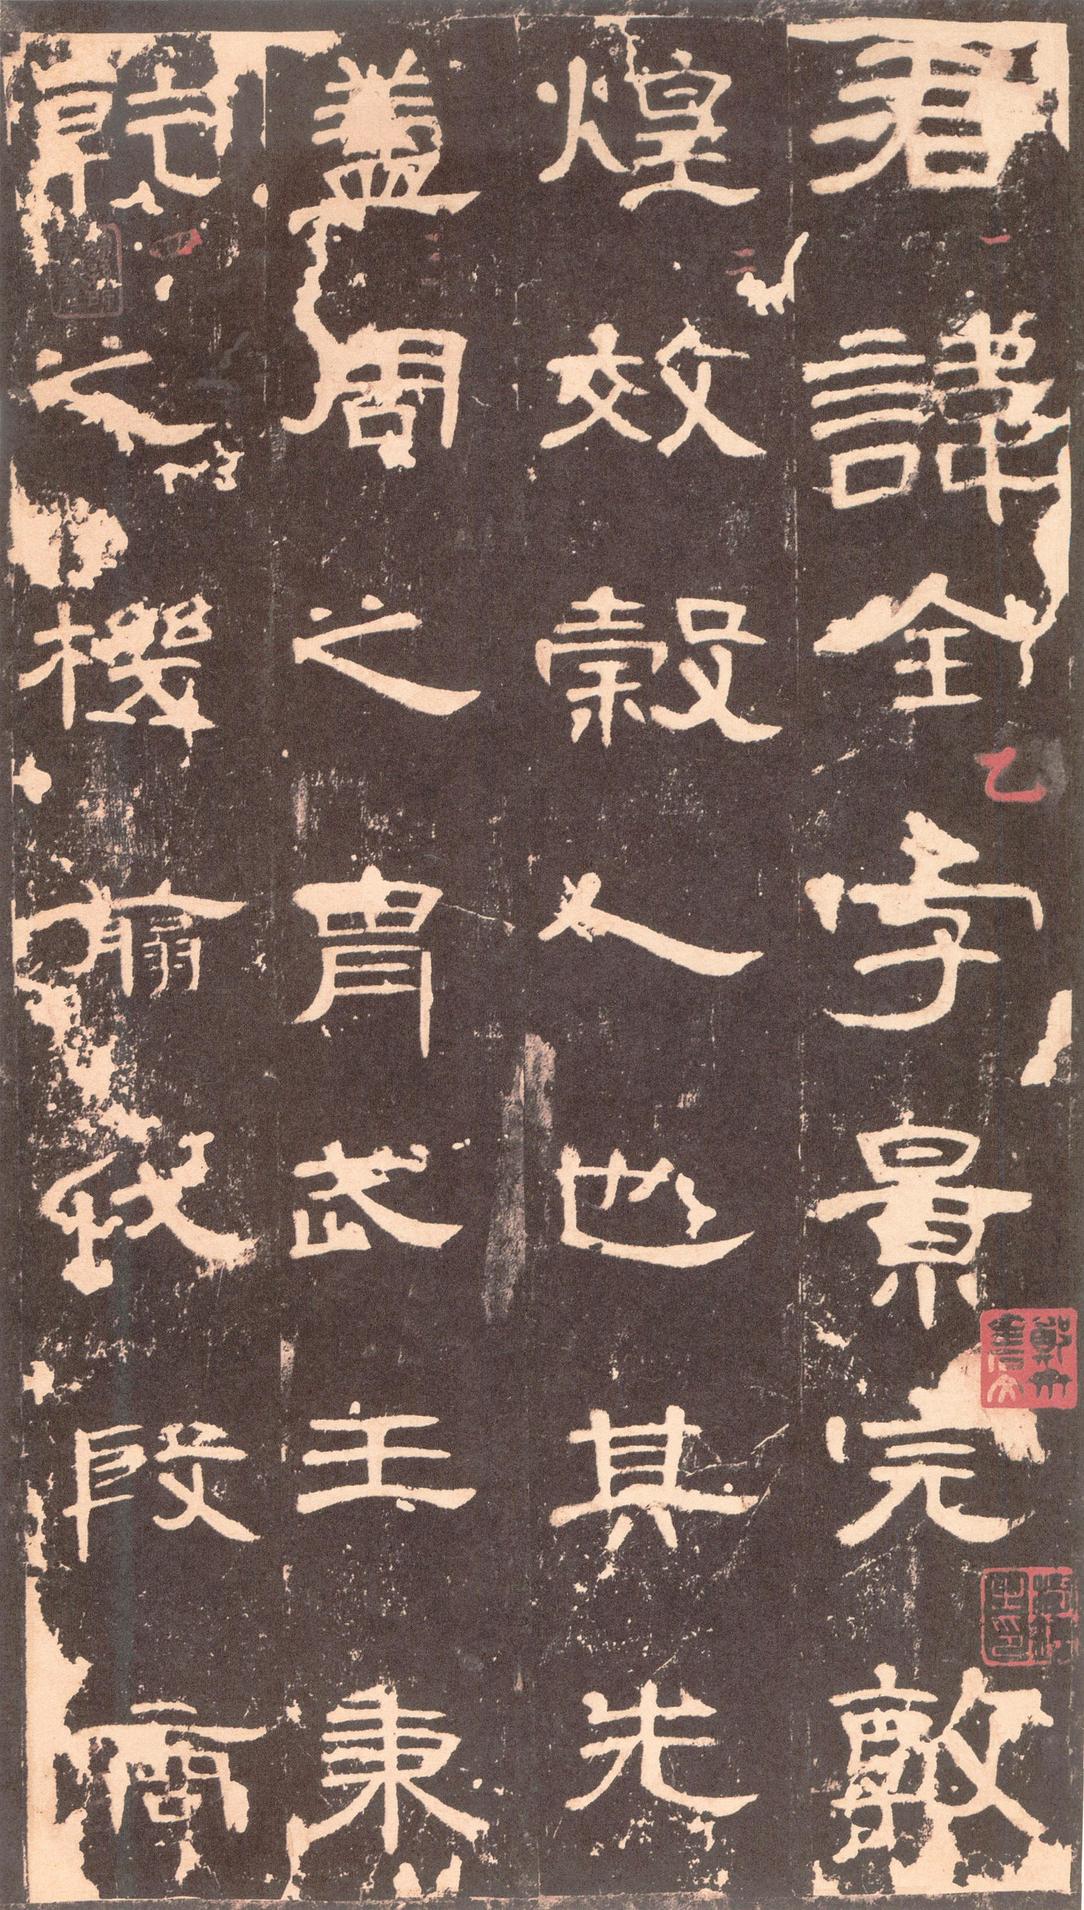 君諱全字景完敦
煌效穀人也其先
蓋周之胄武王秉
乾之機翦伐殷商
一
二
三
四
乙